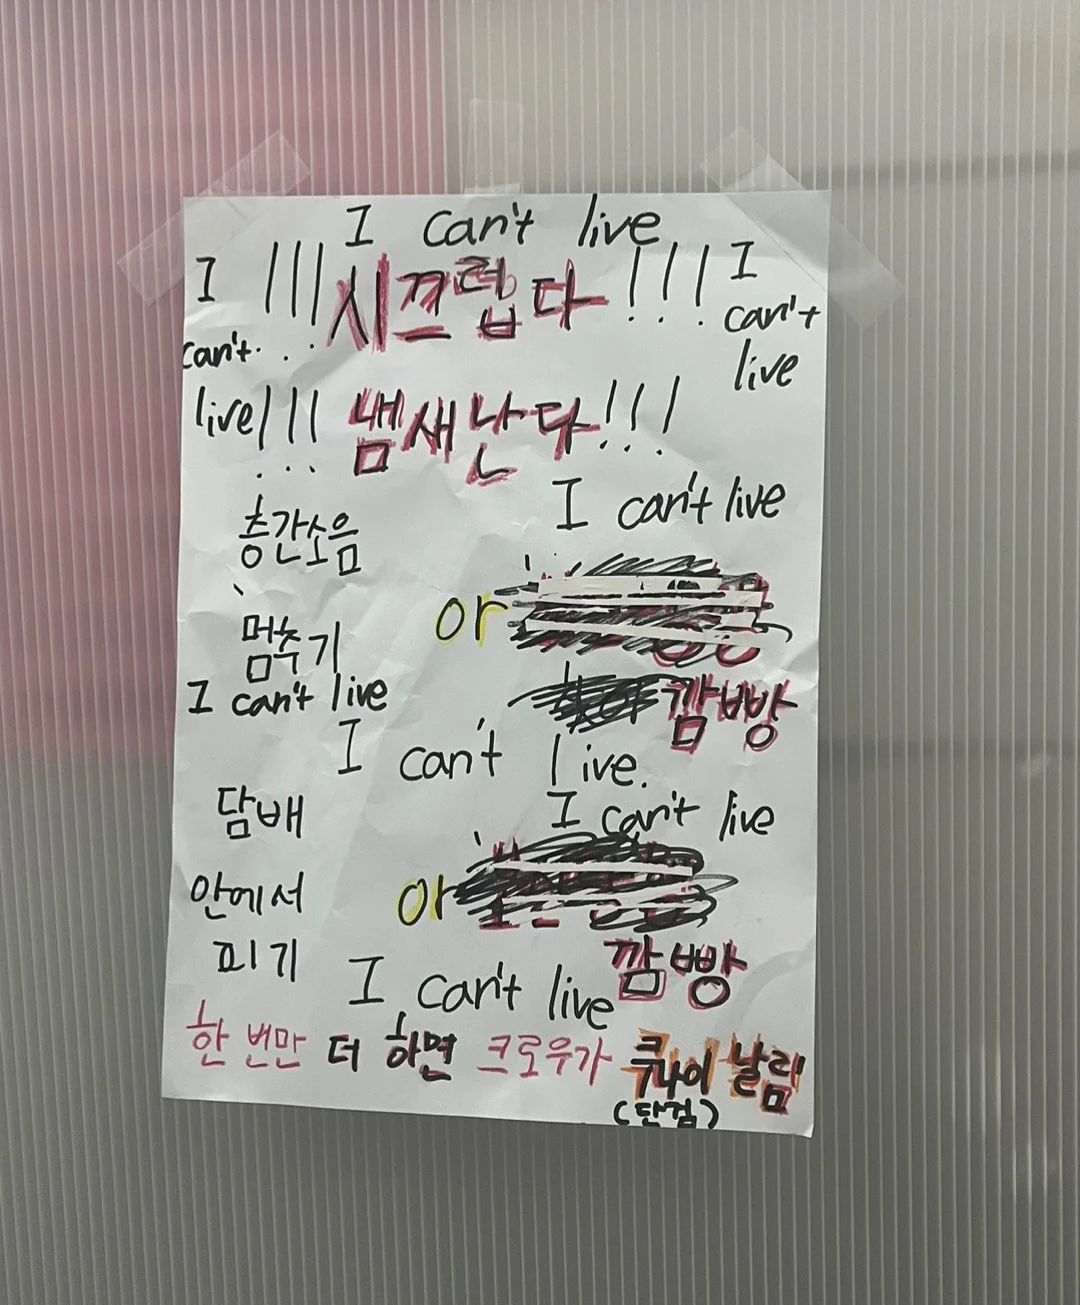 I can't live
I !!! 시끄럽다 !!! I
can't can't
live !!! 냄새난다 !!! live
I can't live
층간소음
멈추기 or
깜빵
I can't live
I can't live.
담배 I can't live
안에서 or
피기 깜빵
I can't live
한 번만 더 하면 크로우가 쿠나이 날림
(단검)